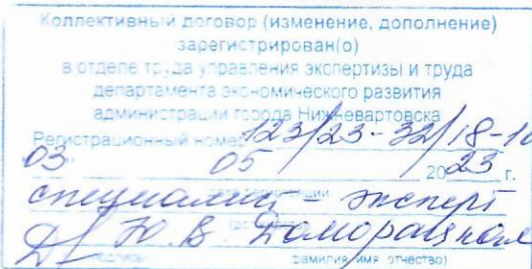 Коллективный договор (изменение, дополнение)
зарегистрирован(о)
в отделе труда управления экспертизы и труда
департамента экономического развития
администрации города Нижневартовска
Регистрационный номер 123/23-32/18-10
03 05 2023 г.
специалист - эксперт
Ю. В
фамилия, имя, отчество)